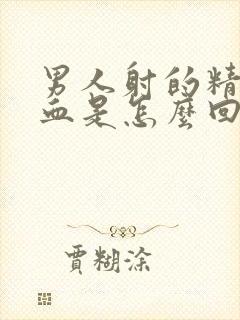 男人射的精
血是怎麼回
賈糊涂